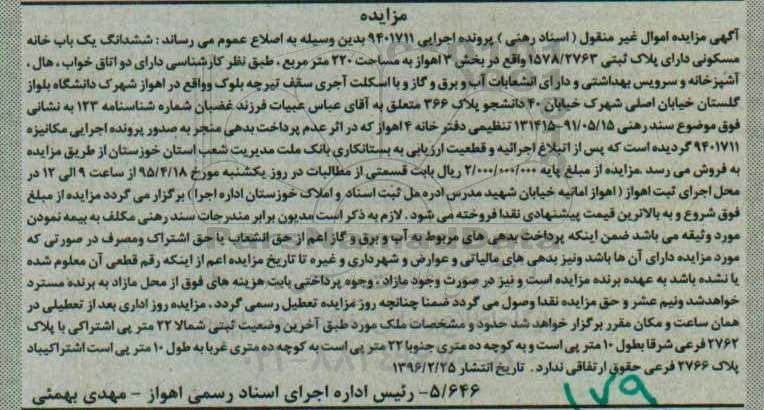 مزایده
آگهی مزایده اموال غیر منقول ( اسناد رهنی ) پرونده اجرایی ۹۴۰۱۷۱۱ بدین وسیله به اصلاع عموم می رساند : ششدانگ یک باب خانه
مسکونی دارای پلاک ثبتی ۱۵۷۸/۲۷۶۳ واقع در بخش ۳ اهواز به مساحت ۲۲۰ متر مربع ، طبق نظر کارشناسی دارای دو اتاق خواب ، هال ،
آشپزخانه و سرویس بهداشتی و دارای انشعابات آب و برق و گاز و با اسکلت آجری سقف تیرچه بلوک وواقع در اهواز شهرک دانشگاه بلوار
گلستان خیابان اصلی شهرک خیابان ۴۰ دانشجو پلاک ۳۶۶ متعلق به آقای عباس عبیات فرزند غضبان شماره شناسنامه ۱۲۳ به نشانی
فوق موضوع سند رهنی ۹۱/۰۵/۱۵-۱۳۱۴۱۵ تنظیمی دفتر خانه ۴ اهواز که در اثر عدم پرداخت بدهی منجر به صدور پرونده اجرایی مکانیزه
۹۴۰۱۷۱۱ گردیده است که پس از ابلاغ اجرائیه و قطعیت ارزیابی به بستانکاری بانک ملت مدیریت شعب استان خوزستان از طریق مزایده
به فروش می رسد .مزایده از مبلغ پایه ۲/۰۰۰/۰۰۰/۰۰۰ ریال بابت قسمتی از مطالبات در روز یکشنبه مورخ ۹۵/۴/۱۸ از ساعت ۹ الی ۱۲ در
محل اجرای ثبت اهواز ( اهواز امانیه خیابان شهید مدرس اداره کل ثبت اسناد و املاک خوزستان اداره اجرا) برگزار می گردد مزایده از مبلغ
فوق شروع و به بالاترین قیمت پیشنهادی نقدا فروخته می شود . لازم به ذکر است مدیون برابر مندرجات سند رهنی مکلف به بیمه نمودن
مورد وثیقه می باشد ضمن اینکه پرداخت بدهی های مربوط به آب و برق و گاز اعم از حق انشعاب یا حق اشتراک ومصرف در صورتی که
مورد مزایده دارای آن ها باشد ونیز بدهی های مالیاتی و عوارض و شهرداری و غیره تا تاریخ مزایده اعم از اینکه رقم قطعی آن معلوم شده
یا نشده باشد به عهده برنده مزایده است و نیز در صورت وجود مازاد ، وجوه پرداختی بابت هزینه های فوق از محل مازاد به برنده مسترد
خواهدشد ونیم عشر و حق مزایده نقدا وصول می گردد ضمنا چنانچه روز مزایده تعطیل رسمی گردد ، مزایده روز اداری بعد از تعطیلی در
همان ساعت و مکان مقرر برگزار خواهد شد حدود و مشخصات ملک مورد طبق آخرین وضعیت ثبتی شمالا ۲۲ متر پی اشتراکی با پلاک
۲۷۶۲ فرعی شرقا بطول ۱۰ متر پی است و به کوچه ده متری جنوبا ۲۲ متر پی است به کوچه ده متری غربا به طول ۱۰ متر پی است اشتراکیباد
پلاک ۲۷۶۶ فرعی حقوق ارتفاقی ندارد . تاریخ انتشار ۱۳۹۶/۲/۲۵
۵/۶۴۶- رئیس اداره اجرای اسناد رسمی اهواز - مهدی بهمئی
۱۷۹